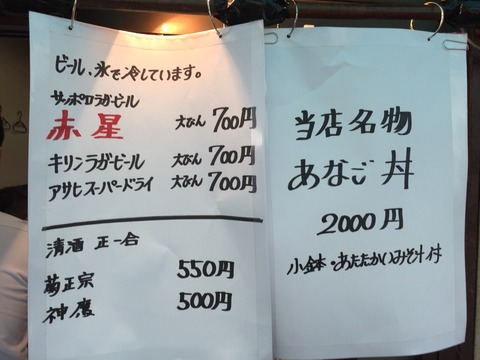 ビール、氷で冷しています。
サッポロラガービール
赤星 大びん 700円
キリンラガービール 大びん 700円
アサヒスーパードライ 大びん 700円
清酒 正一合
菊正宗 550円
神鷹 500円
当店名物
あなご丼
2000円
小鉢・あたたかいみそ汁付